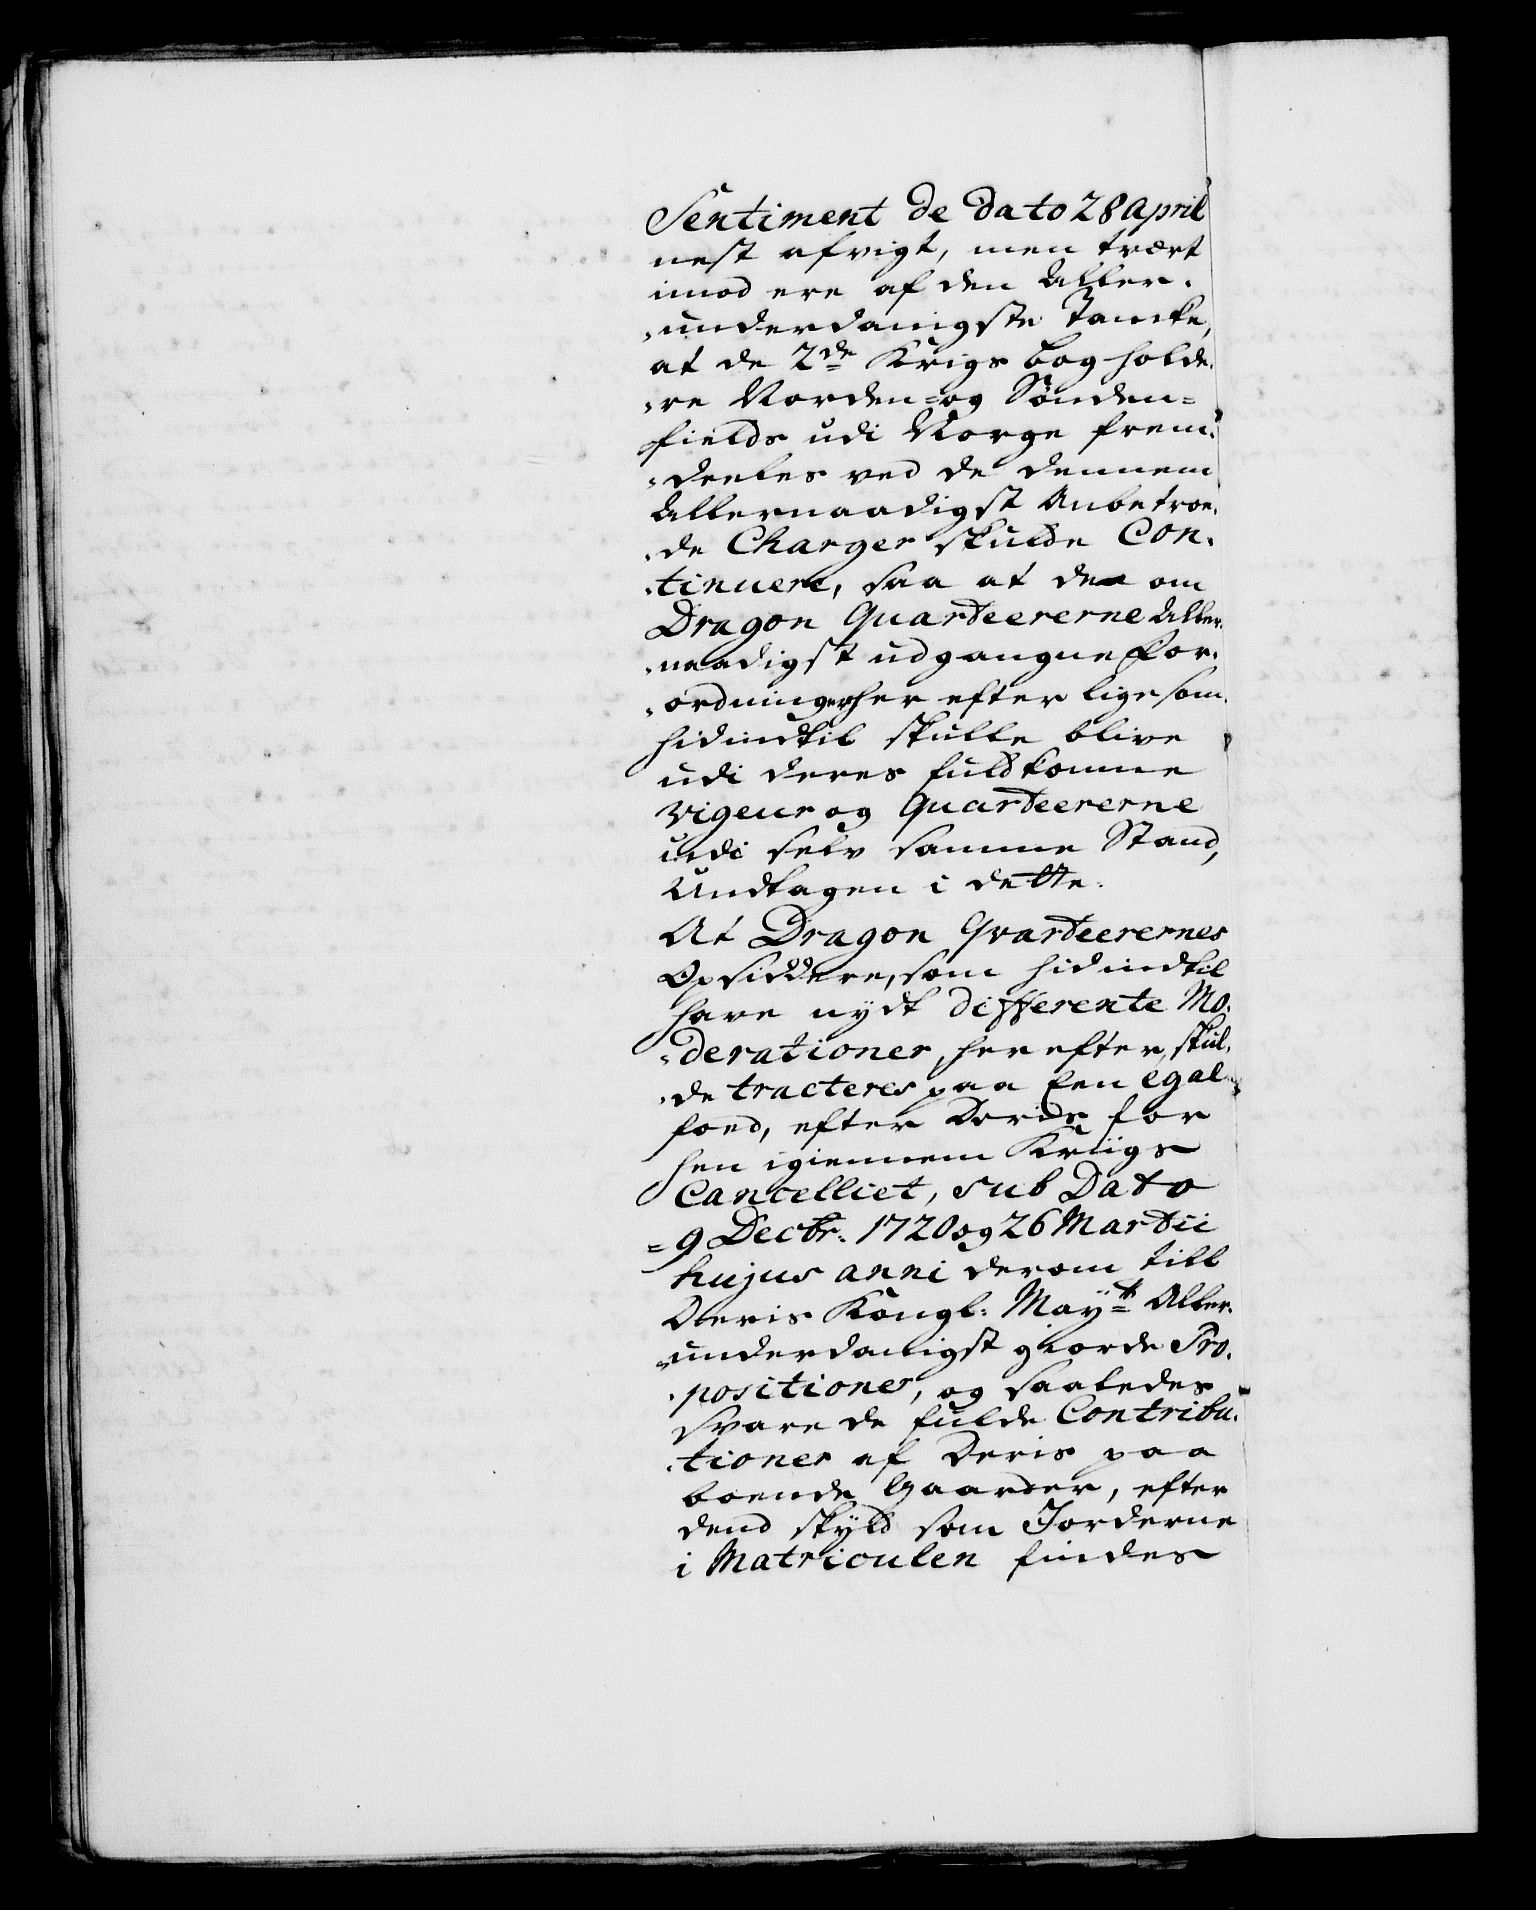 Sentiment de dato 28 April
nest afvigt, men tvært
imod ere af den Aller-
-underdanigste Tancke,
at de 2de Krigs boghold-
-re Norden- og Sønden-
fields udi Norge frem-
-deeles ved de dennem
Allernaadigst Anbetroe-
-de Charger skulde Con-
-tinuere, saa at de om
Dragon Quarteererne Aller-
-naadigst udgangne for-
-ordninger her efter ligesom
hidindtil skulle blive
udi deres fuldkomne
vigeur og Quarteererne
udi selv samme Stand,
Undtagen i dette.
At Dragon Qvarteerernes
Opsiddere, som hidindtil
have nydt differente Mo-
-derationer, her efter, skul-
-de tracteres paa Een egal
foed, efter Deris for
hen igiennem Kriigs
Cancelliet, sub Dato
9 Decbr: 1720 og 26 Martii
hujus anni derom till
Deris Kongl: Mayt Aller-
-underdanigst giorde Pro-
-positioner, og saaledes
svare de fulde Contribu-
-tioner af Deris paa
boende Gaarder, efter
dend skyld som Jorderne
i Matriculen findes